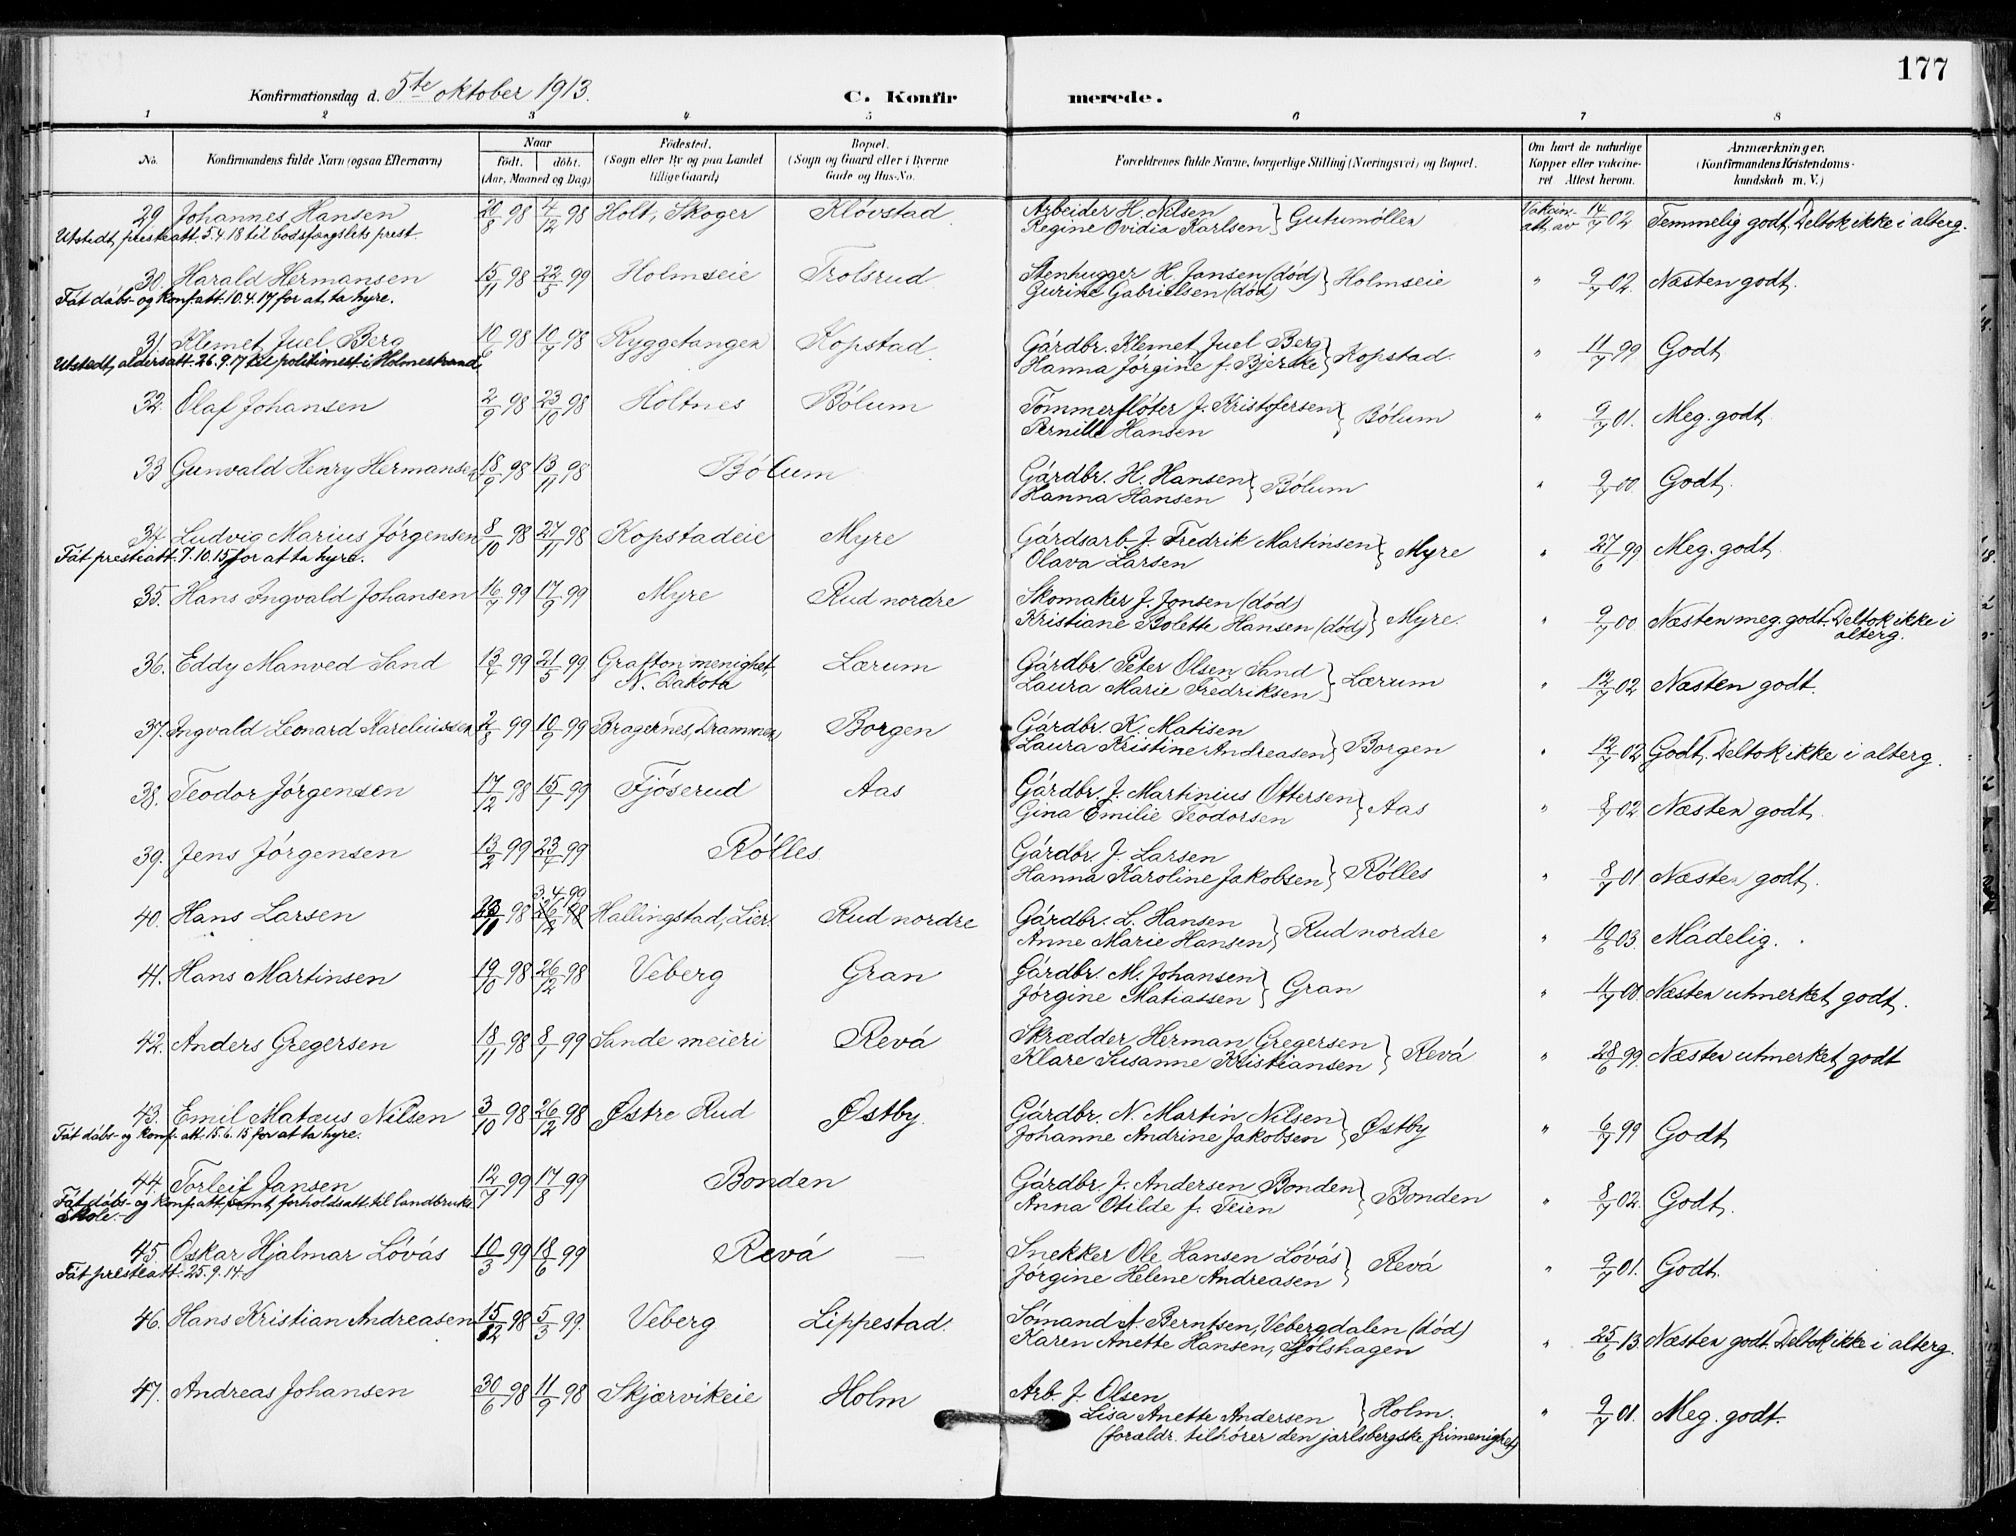 177
Konfirmationsdag d. 5te oktober 1913.
C. Konfirmerede.
1 2 3 4 5 6 7 8
No. Konfirmandens fulde Navn (ogsaa Efternavn) Naar født. døbt. (Aar, Maaned og Dag) Fødested. (Sogn eller By og paa Landet tillige Gaard) Bopæl. (Sogn og Gaard eller i Byerne Gade og Hus-No. Forældrenes fulde Navne, borgerlige Stilling (Næringsvei) og Bopæl. Om havt de naturlige Kopper eller vakcineret. Attest herom. Anmærkninger, (Konfirmandens Kristendomskundskab m. V.)
29. Johannes Hansen 20/8 98 4/12 98 Holt, Skoger Kløvstad. Arbeider H. Nilsen Regine Ovidia Karlsen } Gutumøllen Vakcin-att. av 14/7 02 Temmelig godt. Deltok ikke i alterg.
Utstedt presteatt. 5.4.18 til bodsfængslets prest.
30. Harald Hermansen 15/11 98 22/5 99 Holmseie Trolsrud Stenhugger H. Jansen (død) Gurine Gabrielsen (død) } Holmseie " 9/7 02. Næsten godt.
Fåt dåbs- og konf.att. 10.4.17 for at ta hyre.
31. Klemet Juel Berg 10/6 98 10/7 98 Ryggetangen Kopstad. Gårdbr. Klemet Juel Berg Hanna Jörgine f. Bjerke } Kopstad. " 11/7 99 Godt
Utstedt aldersatt. 26.9.17 til politimest. i Holmestrand
32. Olaf Johansen 2/9 98 23/10 98 Holtnes Bólum Tömmerflöter J. Kristofersen Pernille Hansen } Bólum " 9/7 01. Meg. godt.
33 Gunvald Henry Hermansen 18/9 98 13/11 98 Bólum Gårdbr. H. Hansen Hanna Hansen } Bólum " 9/7 00 Godt.
34. Ludvig Marius Jörgensen 8/10 98 27/11 98 Kopstadeie Myre Gårdsarb. J. Fredrik Martinsen Olava Larsen } Myre " 27/6 99 Meg. godt.
Fåt presteatt. 7.10.15 for at ta hyre.
35. Hans Ingvald Johansen 16/7 99 17/9 99 Myre Rud nordre Skomaker J. Jonsen (död) Kristiane Bolette Hansen (död) } Myre. " 9/7 00 Næsten meg. godt. Deltok ikke i alterg.
36. Eddy Manved Sand 13/4 99 21/5 99 Grafton menighet, N. Dakota Lærum Gårdbr. Peter Olsen Sand Laura Marie Fredriksen } Lærum " 12/7 02 Næsten godt.
37. Ingvald Leonard Kareliussen 2/8 99 10/9 99 Bragernes, Drammen Borgen Gårdbr. K. Matisen Laura Kristine Andreasen } Borgen " 12/7 02 Godt. Deltok ikke i alterg.
38. Teodor Jörgensen 17/12 98 15/1 99 Fjöserud Aas Gårdbr. J. Martinius Ottersen Gina Emilie Teodorsen } Aas " 8/7 02 Næsten godt.
39. Jens Jörgensen 13/2 99 23/4 99 Rölles. Gårdbr. J. Larsen Hanna Karoline Jakobsen } Rölles " 8/7 01 Næsten godt.
3.4.99
40. Hans Larsen 98 26/12 98 Hallingstad, Lier. Rud nordre Gårdbr. L. Hansen Anne Marie Hansen } Rud nordre " 10/6 03. Mådelig.
41. Hans Martinsen 19/10 98 26/12 98 Veberg Gran Gårdbr. M. Johansen Jörgine Matiassen } Gran " 11/7 00. Næsten utmerket godt.
42. Anders Gregersen 18/11 98 8/1 99 Sande meieri Revå Skrædder Herman Gregersen Klare Susanne Kristiansen } Revå " 28/6 99. Næsten utmerket godt
43. Emil Matæus Nilsen 3/10 98 26/12 98 Østre Rud Østby. Gårdbr. N. Martin Nilsen Johanne Andrine Jakobsen } Østby " 6/7 99 Godt
Fåt dåbs- og konf.-att. 15.6.15 for at ta hyre.
44. Torleif Jansen 12/7 99 17/8 99 Bonden Gårdbr. J. Andersen Bonden Anna Otilde f. Teien } Bonden " 8/7 02. Godt.
Fåt dåbs- og konf.att. samt forholdsatt. til landbruks skole.
45. Oskar Hjalmar Lövås 10/3 99 18/6 99 Revå — Snekker Ole Hansen Lövås Jörgine Helene Andreasen } Revå " 9/7 01. Godt.
Fåt presteatt. 25.9.14.
46. Hans Kristian Andreasen 15/12 98 5/3 99. Veberg Lippestad. Sömand A. Berntsen, Vebergdalen (död) Karen Anette Hansen, " 25/6 13. Næsten godt. Deltok ikke i alterg.
47. Andreas Johansen 30/6 98 11/9 98 Skjærvikeie Holm Arb. J. Olsen Lisa Anette Andersen } Holm. " 9/7 01. Meg. godt.
(forældr. tilhører den jarlsbergske frimenighet)